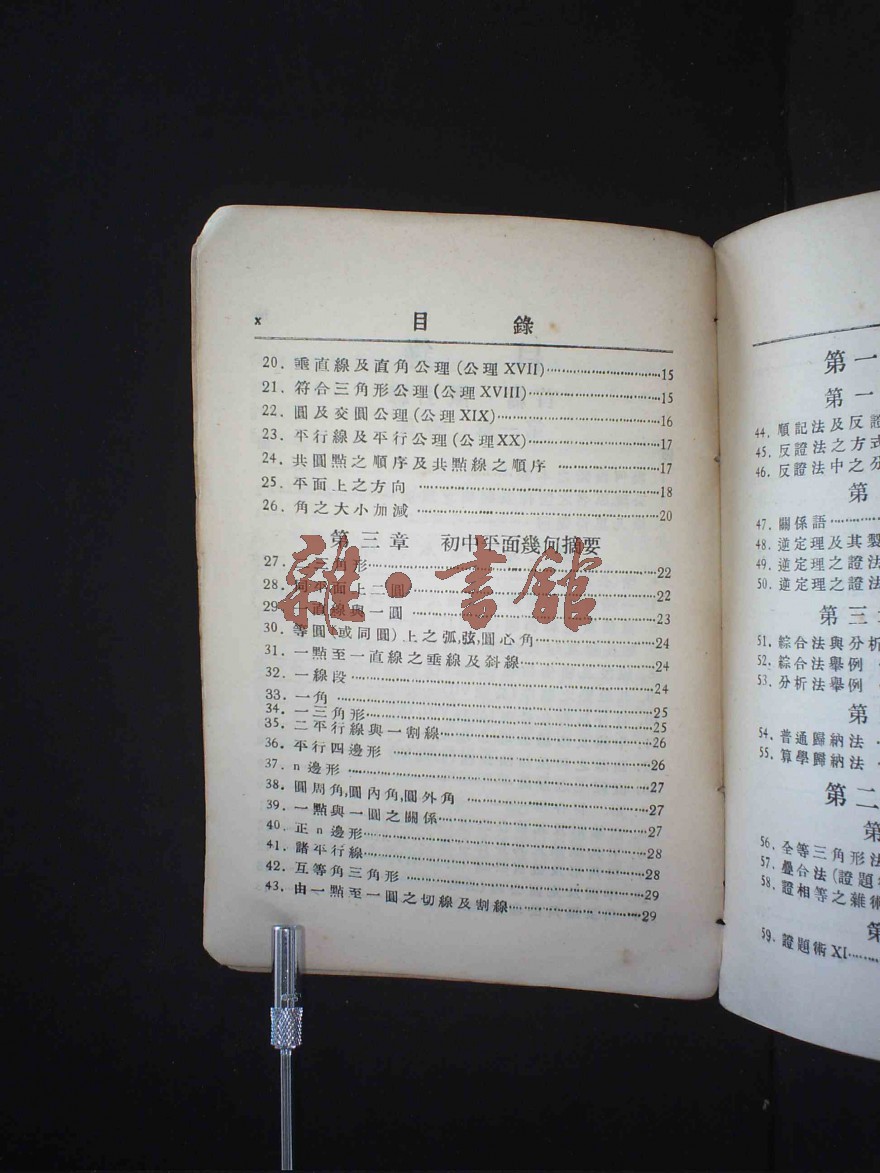 x 目錄
20. 垂直線及直角公理(公理XVII)……15
21. 符合三角形公理(公理XVIII)……15
22. 圓及交圓公理(公理XIX)……16
23. 平行線及平行公理(公理XX)……17
24. 共圓點之順序及共點線之順序……17
25. 平面上之方向……18
26. 角之大小加減……20
第三章 初中平面幾何摘要
27. 二三角形……22
28. 同平面上二圓……22
29. 一直線與一圓……23
30. 等圓(或同圓)上之弧,弦,圓心角……24
31. 一點至一直線之垂線及斜線……24
32. 一線段……24
33. 一角……25
34. 一三角形……25
35. 二平行線與一割線……26
36. 平行四邊形……26
37. n邊形……27
38. 圓周角,圓內角,圓外角……27
39. 一點與一圓之關係……27
40. 正n邊形……28
41. 諸平行線……28
42. 互等角三角形……29
43. 由一點至一圓之切線及割線……29
雜·書館
第一
第一
44. 順記法及反證
45. 反證法之方式
46. 反證法中之分
第
47. 關係語……
48. 逆定理及其製
49. 逆定理之證法
50. 逆定理之證法
第三
51. 綜合法與分析
52. 綜合法舉例
53. 分析法舉例
第
54. 普通歸納法
55. 算學歸納法
第二
第
56. 全等三角形法
57. 疊合法(證題
58. 證相等之雜術
第
59. 證題術XI……